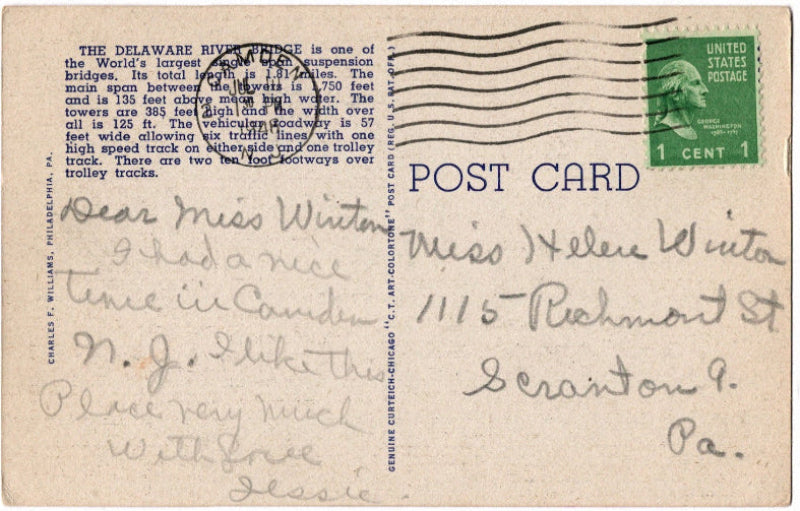 THE DELAWARE RIVER BRIDGE is one of
the World's largest single span suspension
bridges. Its total length is 1.81 miles. The
main span between the towers is 1,750 feet
and is 135 feet above mean high water. The
towers are 385 feet high and the width over
all is 125 ft. The vehicular roadway is 57
feet wide allowing six traffic lines with one
high speed track on either side and one trolley
track. There are two ten foot footways over
trolley tracks.
CHARLES F. WILLIAMS, PHILADELPHIA, PA.
Dear Miss Winton
I had a nice
time in Camden
N. J. I like this
Place very much
With Love
Jessie.
GENUINE CURTEICH-CHICAGO "C.T. ART-COLORTONE" POST CARD (REG. U.S. PAT. OFF.)
CAMDEN
JUL
N J
UNITED
STATES
POSTAGE
GEORGE
WASHINGTON
1 CENT 1
POST CARD
Miss Helen Winton
1115 Richmont St
Scranton 9.
Pa.